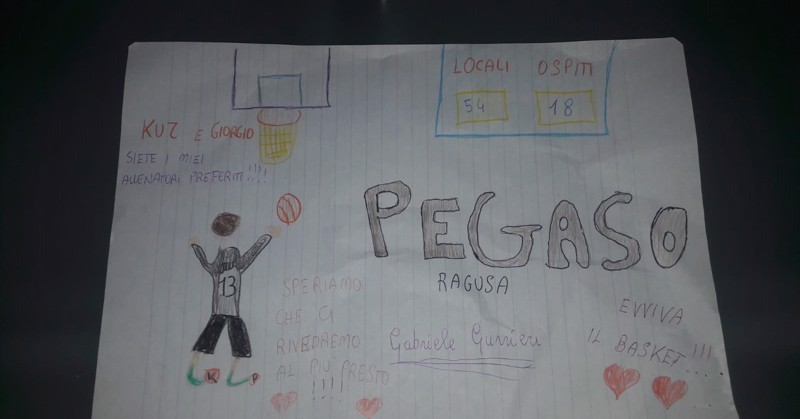 LOCALI OSPITI
54 18
KUZ E GIORGIO
SIETE I MIEI
ALLENATORI PREFERITI!!!!
PEGASO
RAGUSA
13
K P
SPERIAMO
CHE CI
RIVEDREMO
AL PIÙ PRESTO
!!!!
Gabriele Gurrieri
EVVIVA
IL BASKET!!!